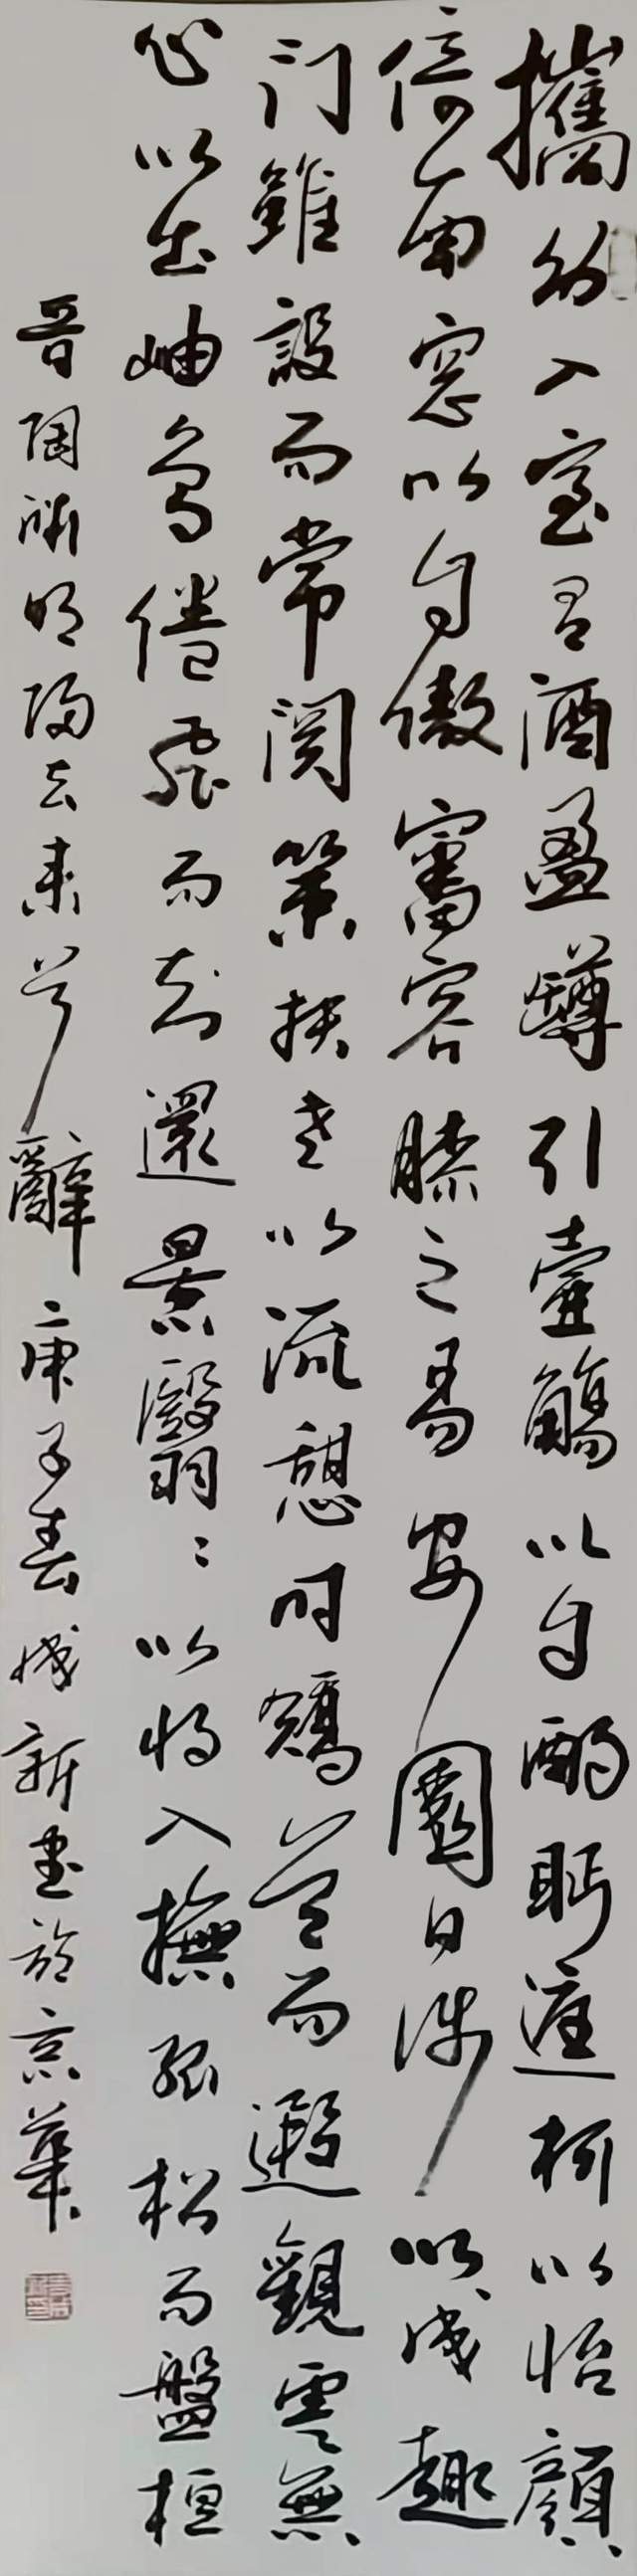 攜幼入室有酒盈罇引壺觴以自酌眄庭柯以怡顏
倚南窓以自傲審容膝之易安園日涉以成趣
门雖設而常関策扶老以流憩時矯首而遐觀雲無
心以出岫鳥倦飛而知還景翳〻以將入撫孤松而盤桓
晉陶淵明歸去来兮辭庚子春成新書於京華